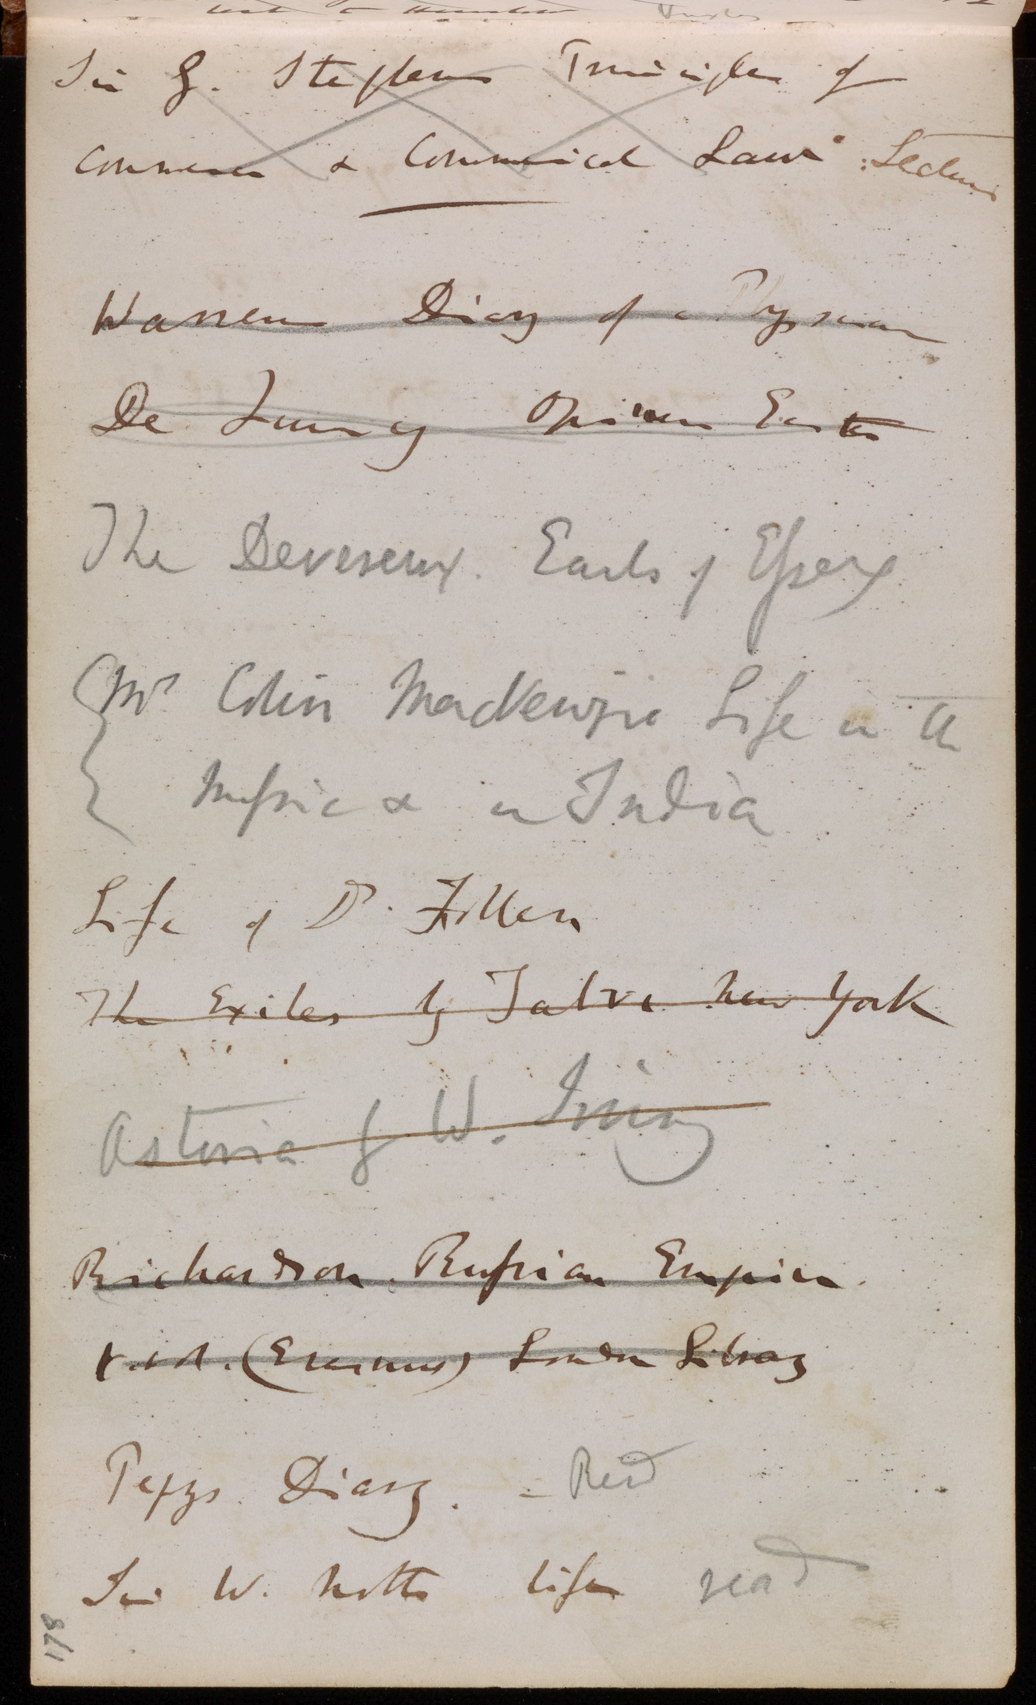 Sir G. Stephens Principles of
Commerce & Commercial Law: Lectures
Warrens Diary of a Physician
De Quincy Opium Eater
The Devereux. Earls of Essex
Mrs Colin MacKenzie Life in the
Mission & in India
Life of Dr. Follen
The Exiles by Talvi New York
Astoria by W. Irving
Richardson. Russian Empire.
(Erasmus) London Library
Pepys. Diary. - Read
Sir W. Notts life read
178